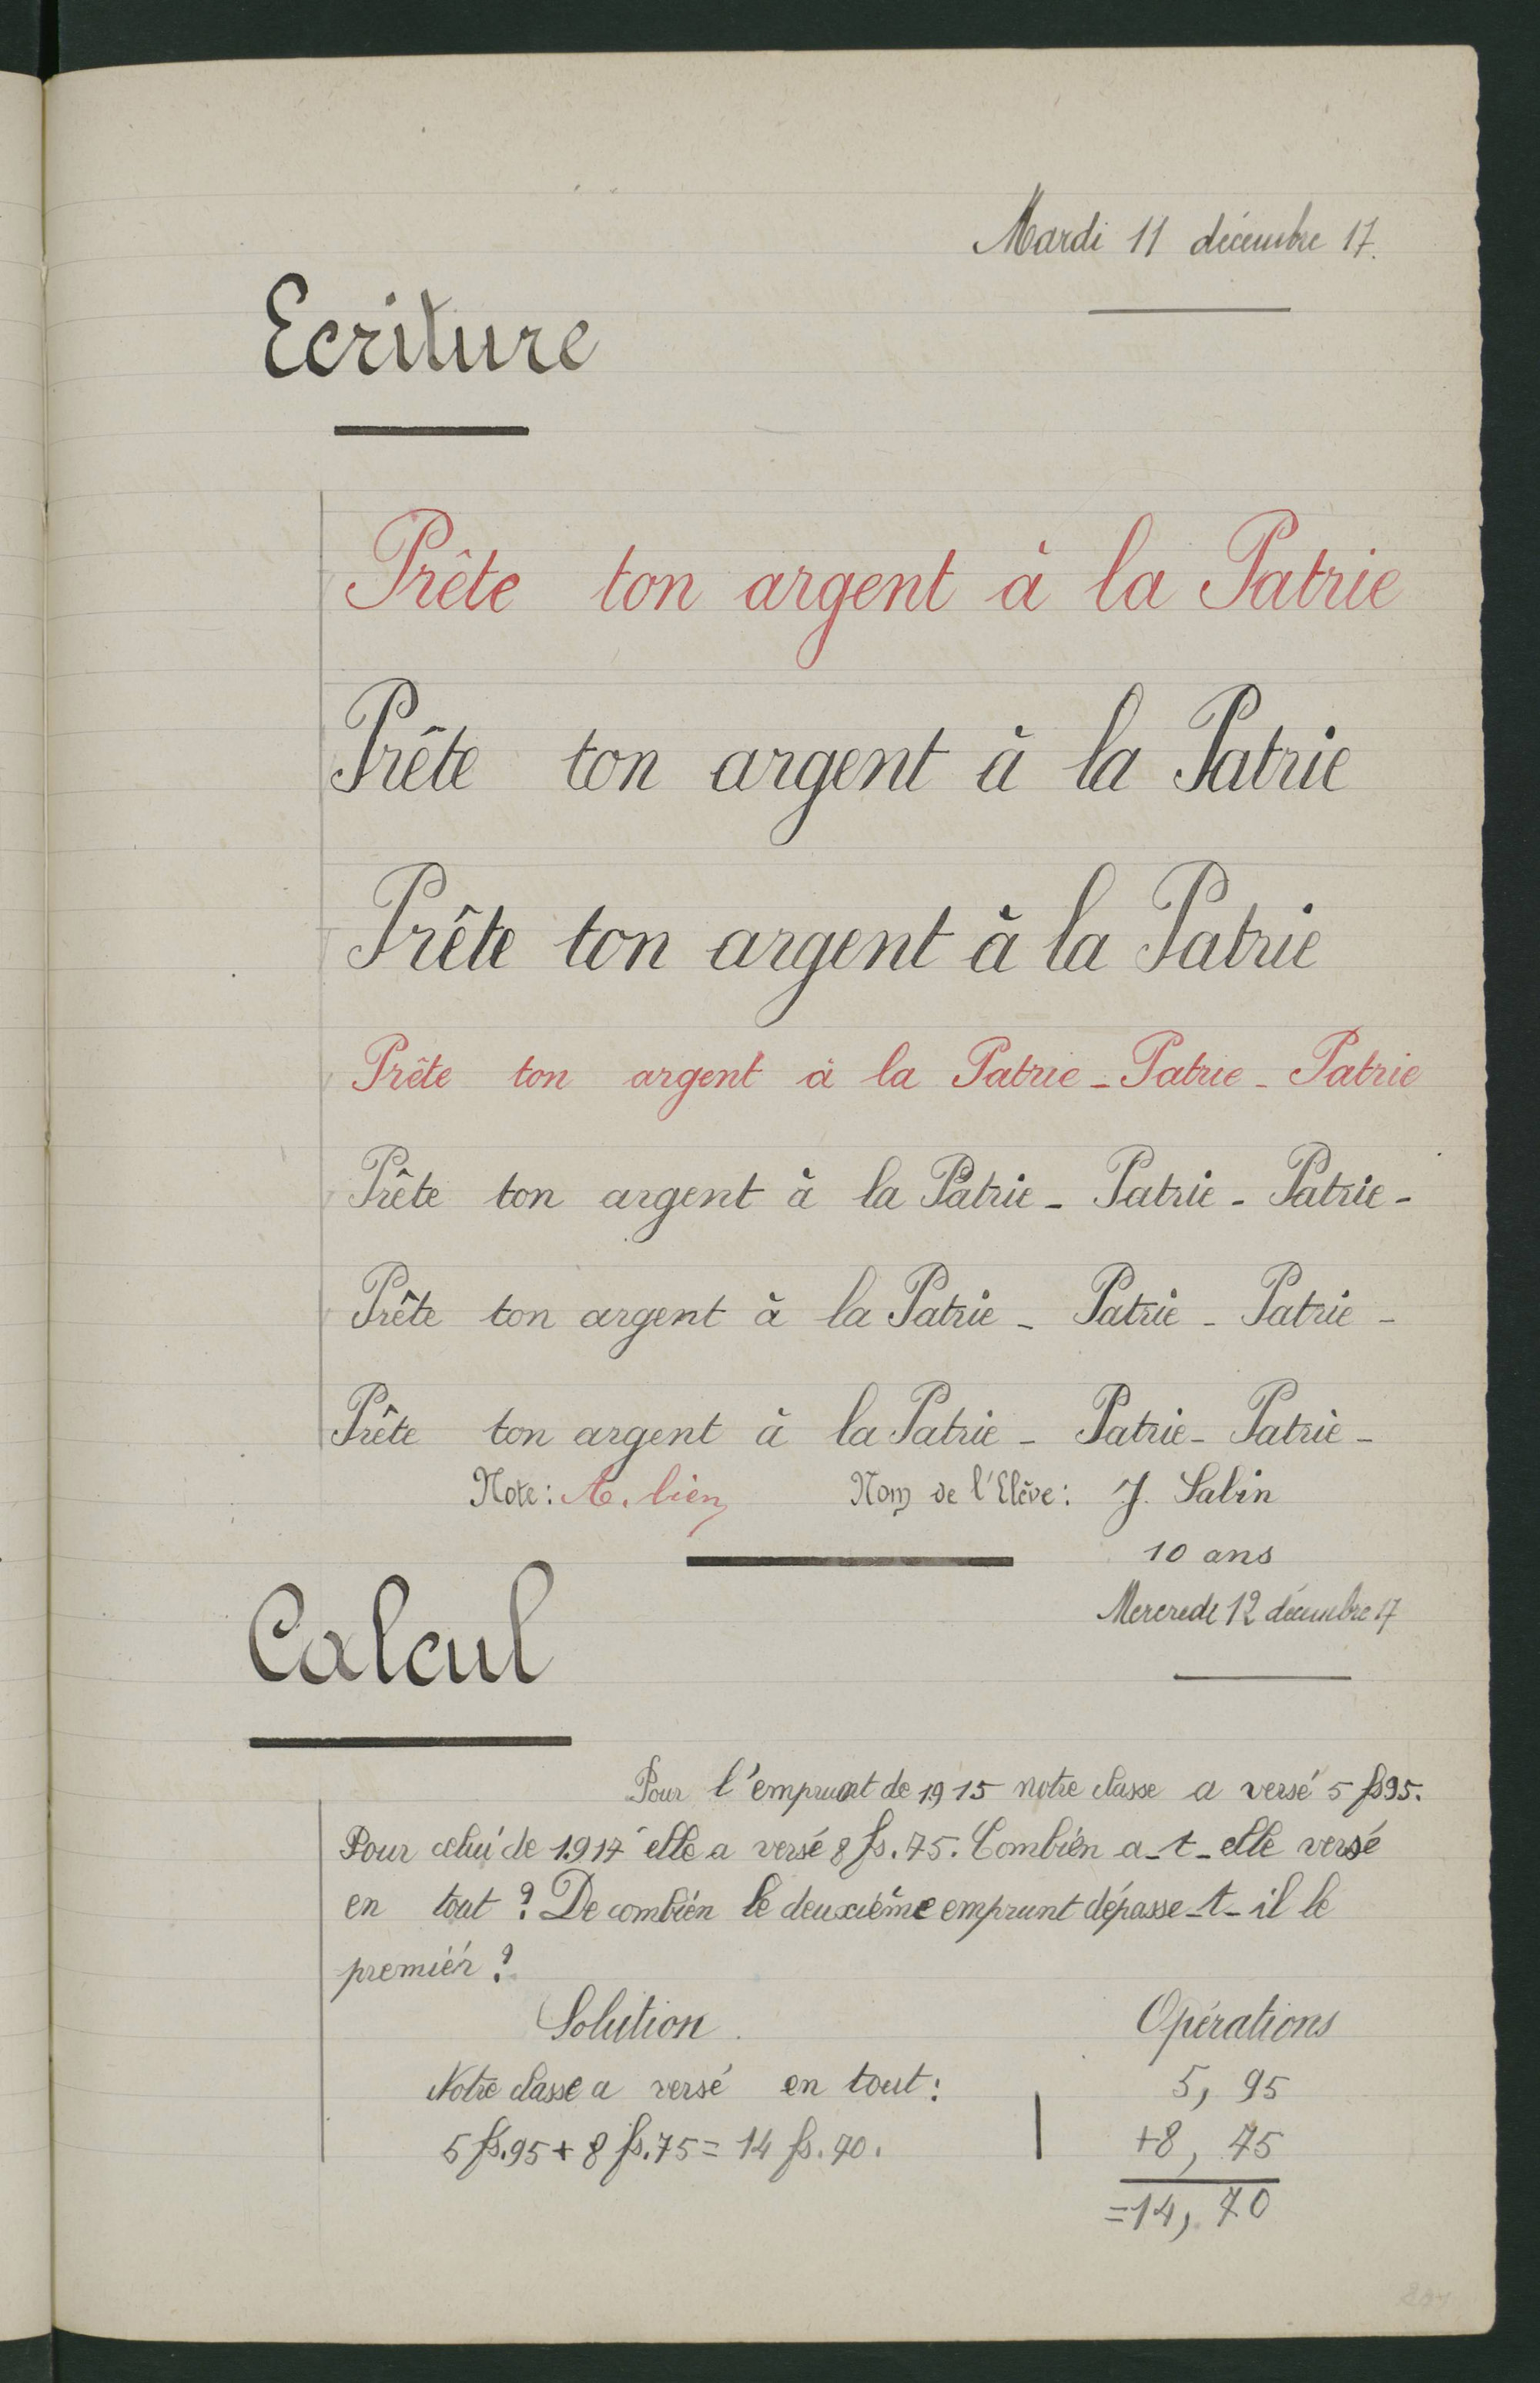 Mardi 11 décembre 17.
Ecriture
Prête ton argent à la Patrie
Prête ton argent à la Patrie
Prête ton argent à la Patrie
Prête ton argent à la Patrie - Patrie - Patrie
Prête ton argent à la Patrie - Patrie - Patrie -
Prête ton argent à la Patrie - Patrie - Patrie -
Prête ton argent à la Patrie - Patrie - Patrie -
Note: A. bien Nom de l'Elève: J. Sabin
10 ans
Mercredi 12 décembre 17
Calcul
Pour l'emprunt de 1915 notre classe a versé 5 fs95.
Pour celui de 1917 elle a versé 8 fs.75. Combien a-t-elle versé
en tout ? De combien le deuxième emprunt dépasse-t-il le
premier ?
Solution. Opérations
Notre classe a versé en tout: 5,95
5 fs.95 + 8 fs.75 = 14 fs.70. +8,75
=14,70